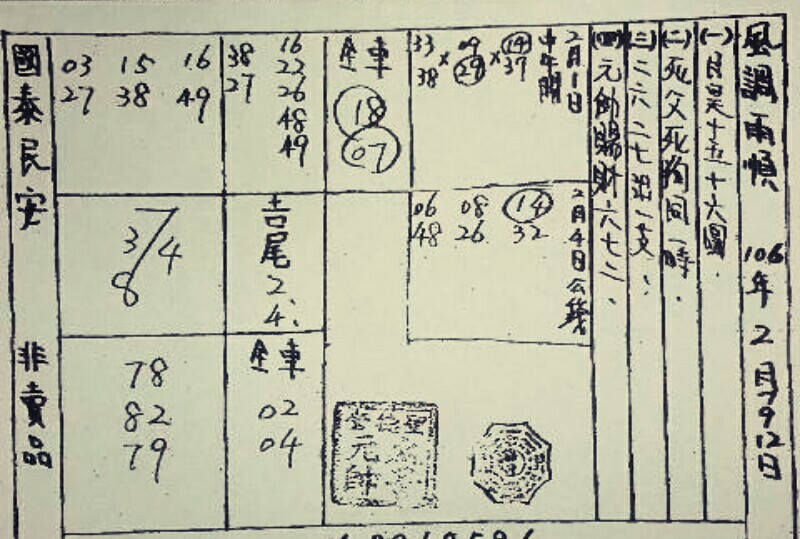 風調雨順 106年2月7 9 12日
(一) 月見十五十六圓.
(二) 死父死狗同一時.
(三) 二六二七進一支.
(四) 元帥賜財六七二.
2月1日
33 09 14
38 × 29 × 37
2月4日公籤
06 08 14
48 26 32
坐車
18
07
16
38 22
27 26
48
49
03 15 16
27 38 49
吉尾2.4.
3/4
8
坐車
02
04
78
82
79
元帥
國泰民安 非賣品